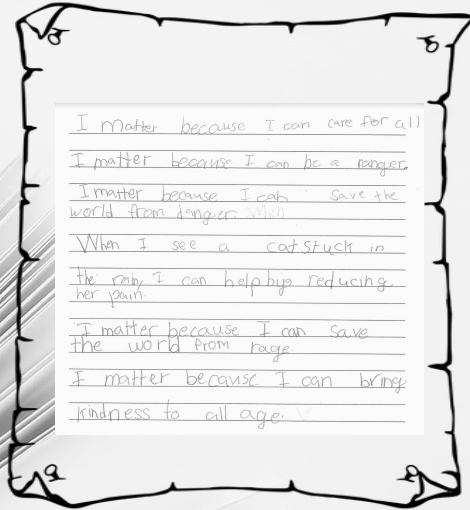 I matter because I can care for all
I matter because I can be a ranger.
I matter because I can save the
world from danger when
When I see a cat stuck in
the rain, I can help by reducing
her pain.
I matter because I can save
the world from rage.
I matter because I can bring
kindness to all age.